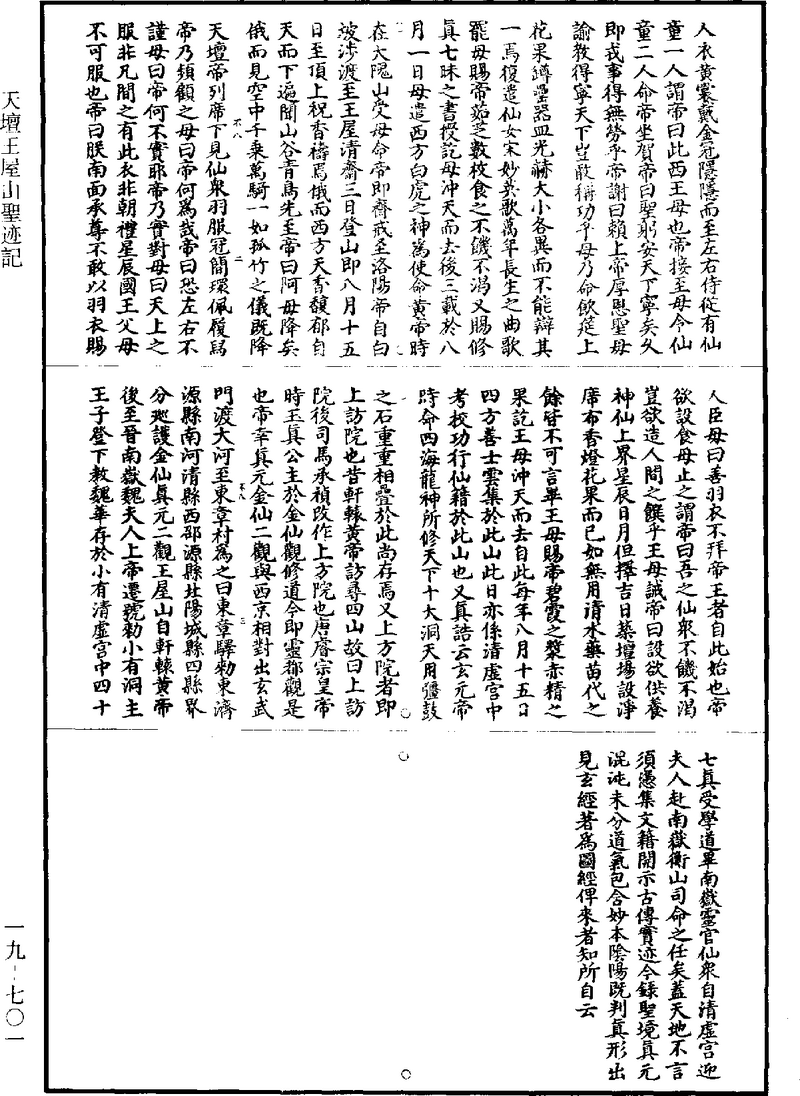 人衣黃裳戴金冠隱隱而至左右侍從有仙
童一人謂帝曰此西王母也帝接至母令仙
童二人命帝坐賀帝曰聖躬安天下寧矣久
即戎事得無勞乎帝謝曰賴上帝厚恩聖母
諭教得寧天下豈敢稱功乎母乃命飲筵上
花果罇罍器皿光赫大小各異而不能辯其
一焉復遣仙女宋妙英歌萬年長生之曲歌
罷母賜帝茹芝數枚食之不饑不渴又賜修
真七昧之書授訖母沖天而去後三載於八
月一日母遣西方白虎之神為使命黃帝時
在大隗山受母命帝即齋戒至洛陽帝自白
波涉渡至王屋清齋三日登山即八月十五
日至頂上祝香禱焉俄而西方天香馥郁自
天而下遍聞山谷青鳥先至帝曰阿母降矣
俄而見空中千乘萬騎一如孤竹之儀既降
天壇帝列席下見仙眾羽服冠簡環佩履舄
帝乃頻顧之母曰帝何為哉帝曰恐左右不
謹母曰帝何不實耶帝乃實對母曰天上之
服非凡間之有此衣非朝禮星辰國王父母
不可服也帝曰朕南面承尊不敢以羽衣賜
人臣母曰善羽衣不拜帝王者自此始也帝
欲設食母止之謂帝曰吾之仙眾不饑不渴
豈欲造人間之饌乎王母誡帝曰設欲供養
神仙上界星辰日月但擇吉日築壇場設淨
席布香燈花果而已如無用清水藥苗代之
餘皆不可言畢王母賜帝碧霞之漿赤精之
果訖王母沖天而去自此每年八月十五日
四方善士雲集於此山此日亦係清虛宮中
考校功行仙籍於此山也又真誥云玄元帝
時命四海龍神所修天下十大洞天用彊鼓
之石重重相疊於此尚存焉又上方院者即
上訪院也昔軒轅黃帝訪尋四山故曰上訪
院後司馬承禎改作上方院也唐睿宗皇帝
時玉真公主於金仙觀修道今即靈都觀是
也帝幸真元金仙二觀與西京相對出玄武
門渡大河至東章村為之曰東章驛勅東濟
源縣南河清縣西邵源縣北陽城縣四縣界
分巡護金仙真元二觀王屋山自軒轅黃帝
後至晉南嶽魏夫人上帝遷號勅小有洞主
王子登下教魏華存於小有清虛宮中四十
七真受學道畢南嶽靈官仙眾自清虛宮迎
夫人赴南嶽衡山司命之任矣蓋天地不言
須憑集文籍開示古傳實迹今錄聖境真元
混沌未分道氣包含妙本陰陽既判真形出
見玄經著為圖經俾來者知所自云
天壇王屋山聖迹記
一九-七〇一